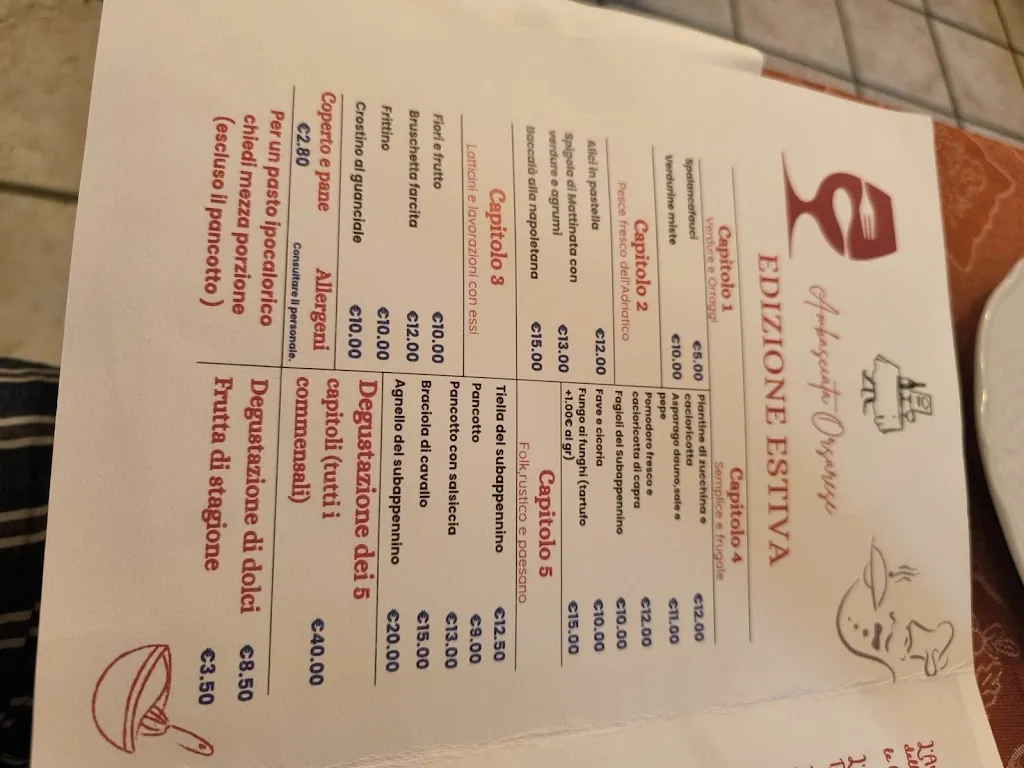 Ambasciata Orsarese
EDIZIONE ESTIVA
Capitolo 1
Verdure e Ortaggi
Spalancafauci €5.00
Verdurine miste €10.00
Capitolo 2
Pesce fresco dell'Adriatico
Alici in pastella €12.00
Spigola di Mattinata con
verdure e agrumi €13.00
Baccalà alla napoletana €15.00
Capitolo 3
Latticini e lavorazioni con essi
Fiori e frutto €10.00
Bruschetta farcita €12.00
Frittino €10.00
Crostino al guanciale €10.00
Coperto e pane
€2.80
Allergeni
Consultare il personale.
Per un pasto ipocalorico
chiedi mezza porzione
(escluso il pancotto)
Capitolo 4
Semplice e frugale
Piantine di zucchina e
cacioricotta €12.00
Asparago dauno, sale e
pepe €11.00
Pomodoro fresco e
cacioricotta di capra €12.00
Fagioli del subappennino €10.00
Fave e cicoria €10.00
Fungo ai funghi (tartufo
+1.00€ al gr) €15.00
Capitolo 5
Folk,rustico e paesano
Tiella del subappennino €12.50
Pancotto €9.00
Pancotto con salsiccia €13.00
Braciola di cavallo €15.00
Agnello del subappennino €20.00
Degustazione dei 5
capitoli (tutti i
commensali) €40.00
Degustazione di dolci €8.50
Frutta di stagione €3.50